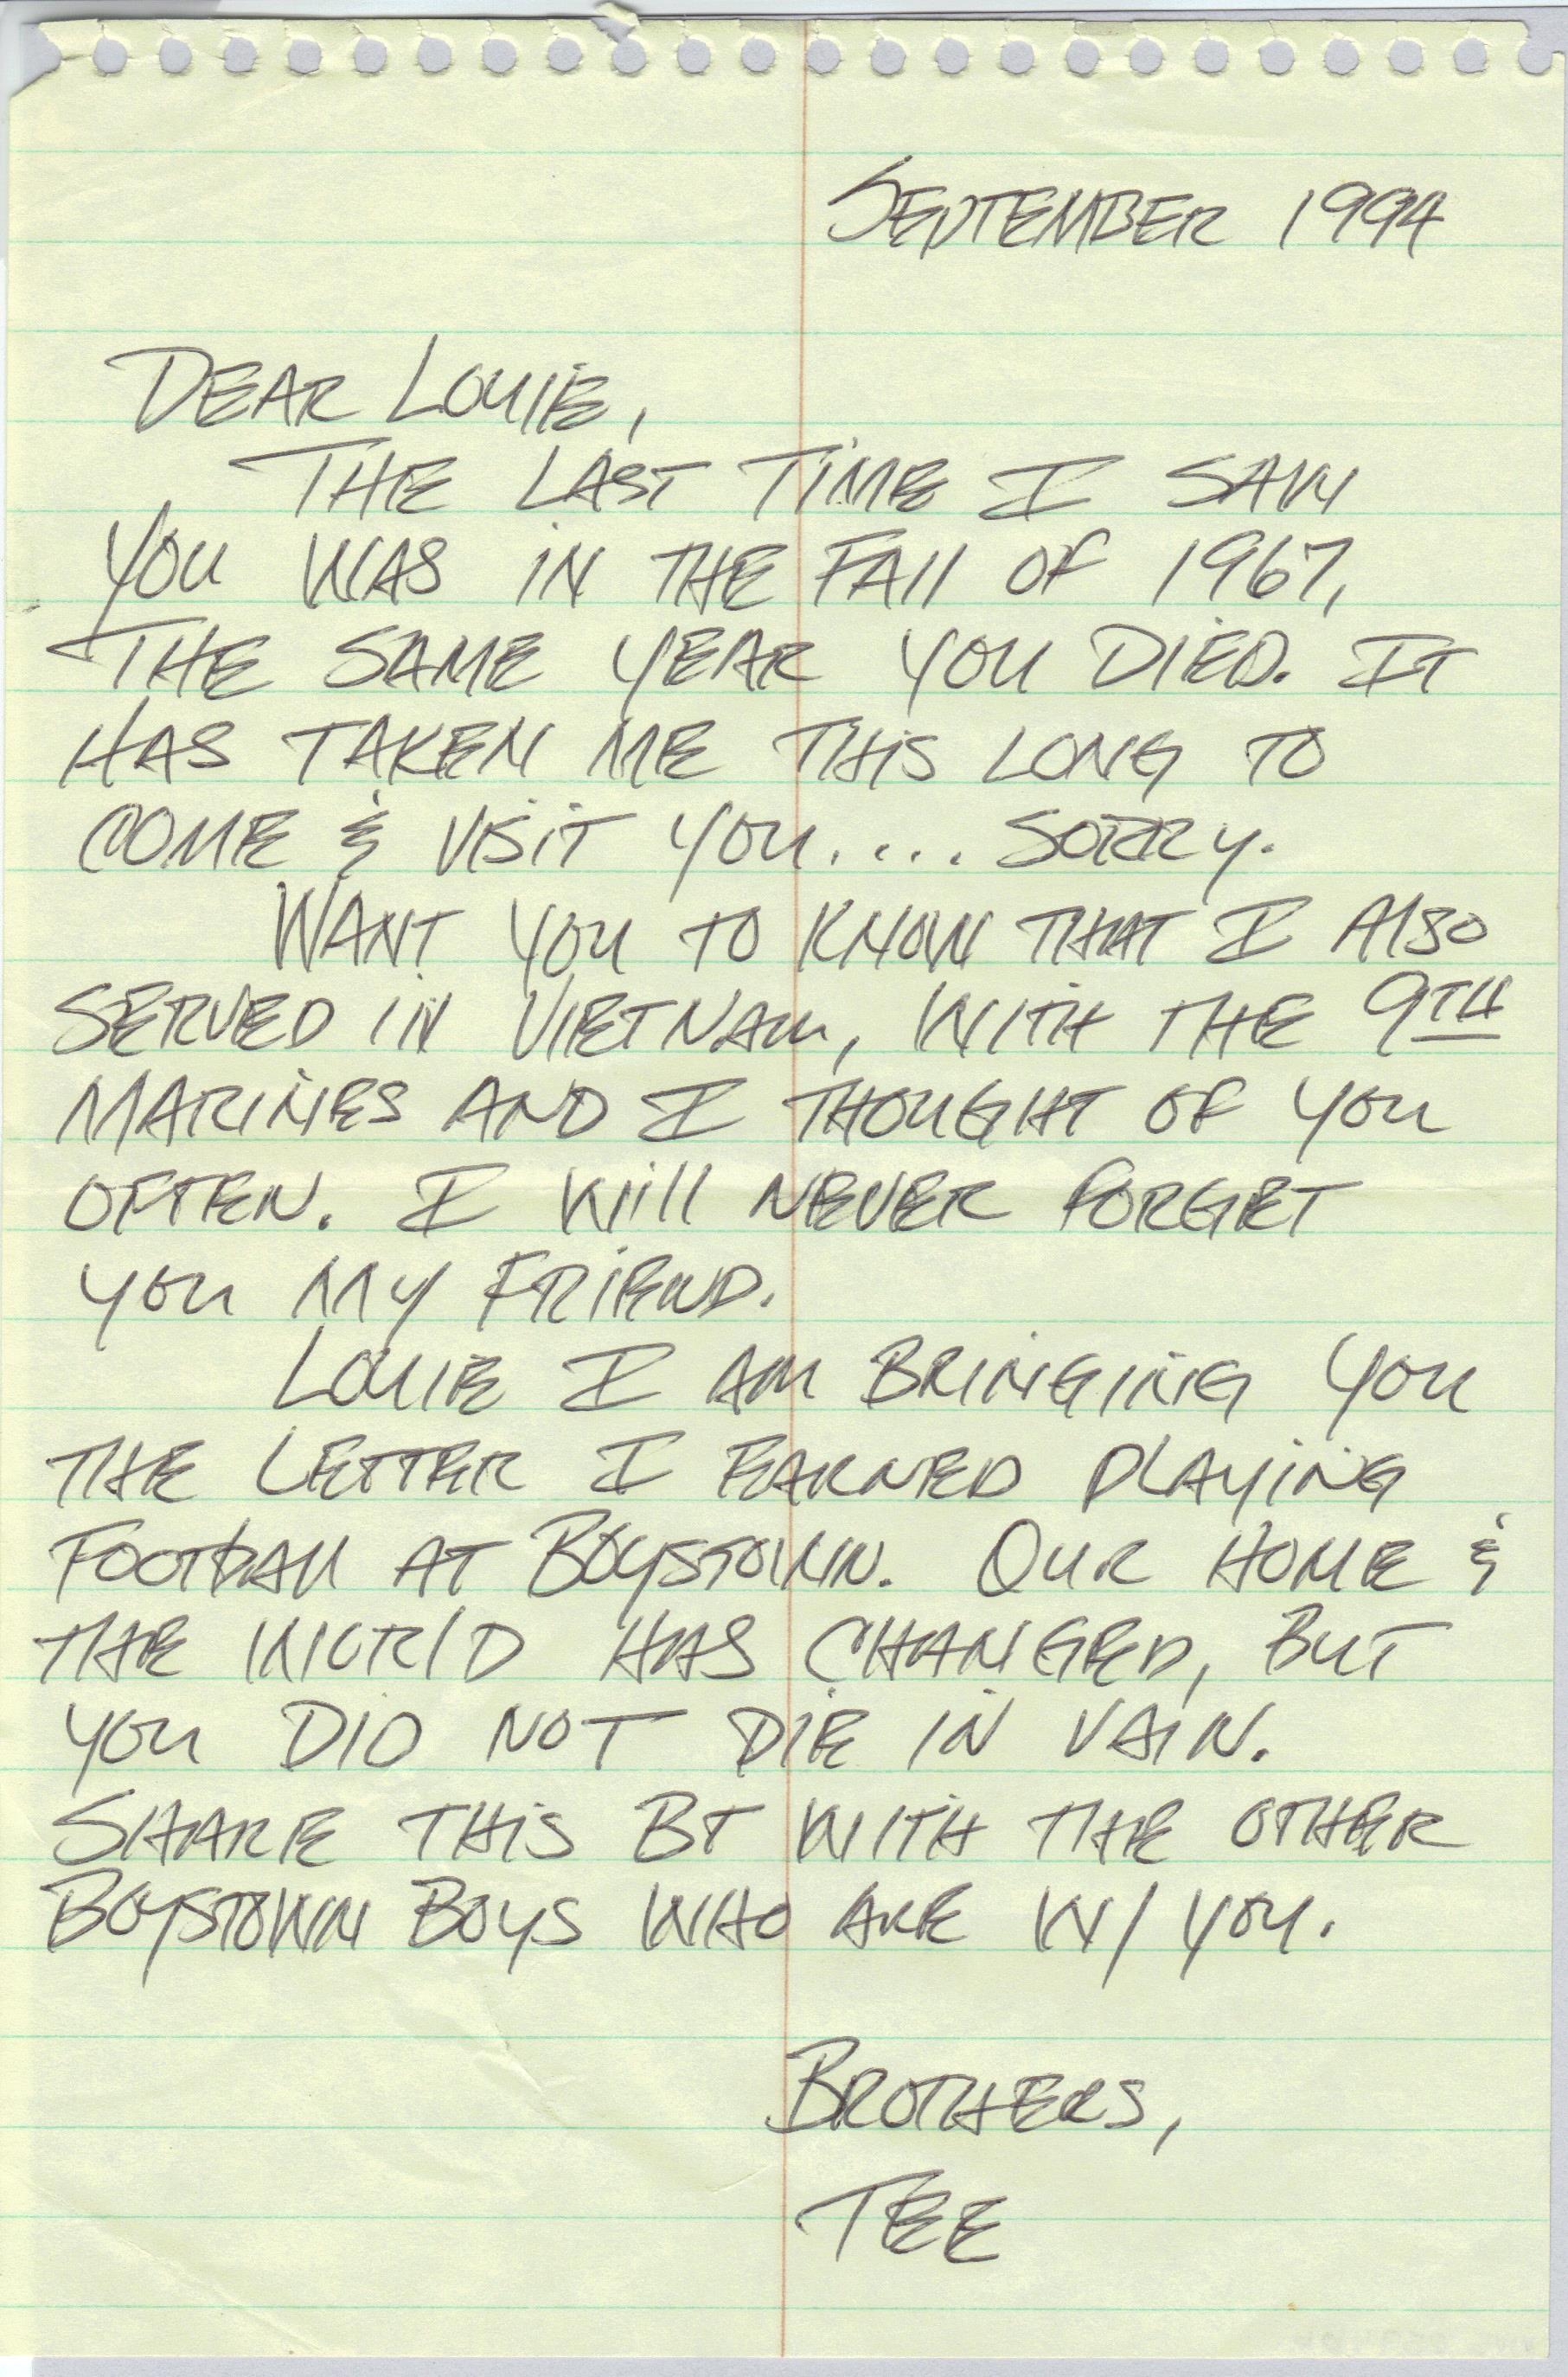 SEPTEMBER 1994
DEAR LOUIE,
THE LAST TIME I SAW
YOU WAS IN THE FALL OF 1967,
THE SAME YEAR YOU DIED. IT
HAS TAKEN ME THIS LONG TO
COME & VISIT YOU.... SORRY.
WANT YOU TO KNOW THAT I ALSO
SERVED IN VIETNAM, WITH THE 9TH
MARINES AND I THOUGHT OF YOU
OFTEN. I WILL NEVER FORGET
YOU MY FRIEND.
LOUIE I AM BRINGING YOU
THE LETTER I EARNED PLAYING
FOOTBALL AT BOYSTOWN. OUR HOME &
THE WORLD HAS CHANGED, BUT
YOU DID NOT DIE IN VAIN.
SHARE THIS BT WITH THE OTHER
BOYSTOWN BOYS WHO ARE W/ YOU.
BROTHERS,
TEE